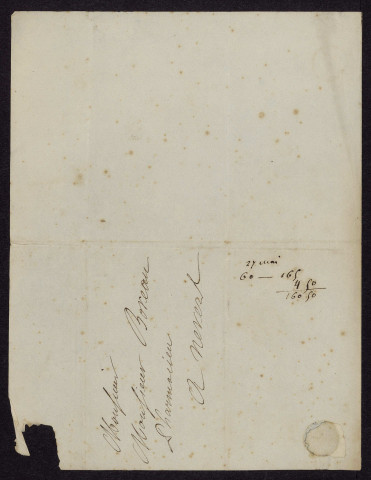 Monsieur
Monsieur Boreau
Pharmacien
A nevers
27 mai
60 — 165
4 50
160 50